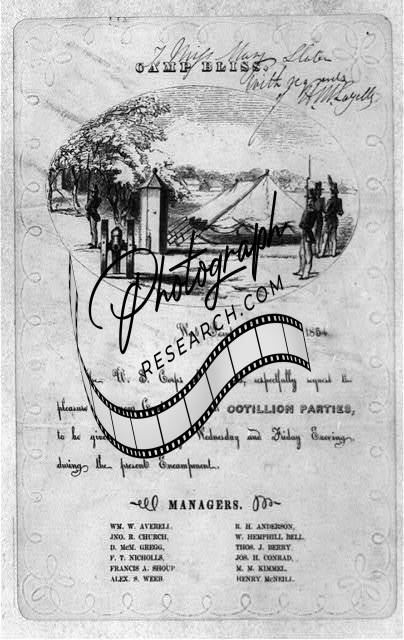 To Miss Mary Slater
CAMP BLISS.
With regards
of
Photograph
RESEARCH.COM
1854
U. S. Corps respectfully request the
pleasure COTILLION PARTIES,
to be Wednesday and Friday Evening,
during the present Encampment.
MANAGERS.
WM. W. AVERELL,
JNO. R. CHURCH,
D. McM. GREGG,
F. T. NICHOLLS,
FRANCIS A. SHOUP
ALEX. S. WEBB.
R. H. ANDERSON,
W. HEMPHILL BELL,
THOS. J. BERRY
JOS. H. CONRAD,
M. M. KIMMEL,
HENRY McNEILL.